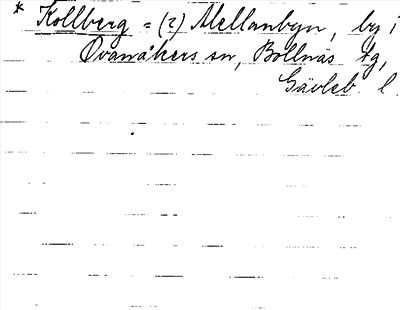 * Kollberg = (?) Mellanbyn, by i
Ovanåkers sn, Bollnäs tg,
Gävleb. l